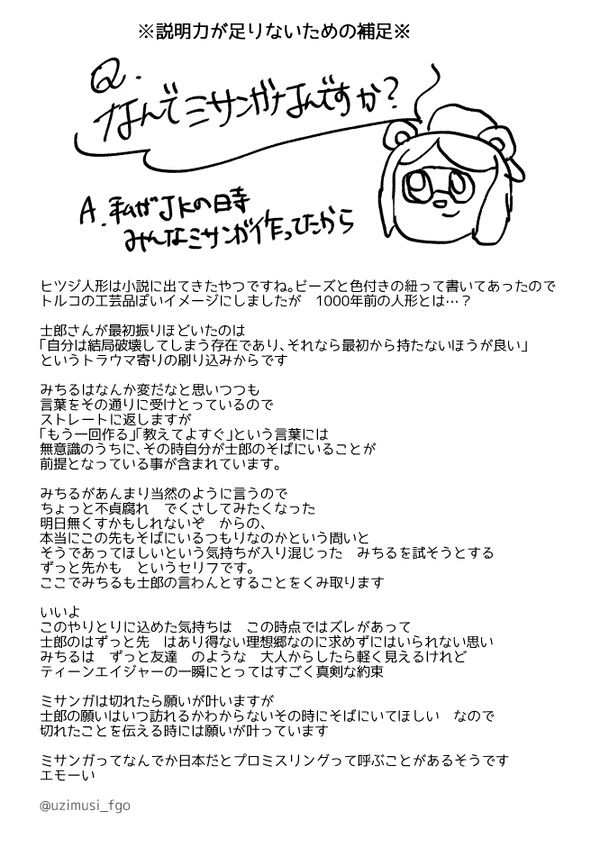 ※説明力が足りないための補足※
Q.
なんでミサンガなんですか?
A.私がJKの時
みんなミサンガ作ってたから
ヒツジ人形は小説に出てきたやつですね。ビーズと色付きの紐って書いてあったので
トルコの工芸品ぽいイメージにしましたが　1000年前の人形とは…?
士郎さんが最初振りほどいたのは
「自分は結局破壊してしまう存在であり、それなら最初から持たないほうが良い」
というトラウマ寄りの刷り込みからです
みちるはなんか変だなと思いつつも
言葉をその通りに受けとっているので
ストレートに返しますが
「もう一回作る」「教えてよすぐ」という言葉には
無意識のうちに、その時自分が士郎のそばにいることが
前提となっている事が含まれています。
みちるがあんまり当然のように言うので
ちょっと不貞腐れ　でくさしてみたくなった
明日無くすかもしれないぞ　からの、
本当にこの先もそばにいるつもりなのかという問いと
そうであってほしいという気持ちが入り混じった　みちるを試そうとする
ずっと先かも　というセリフです。
ここでみちるも士郎の言わんとすることをくみ取ります
いいよ
このやりとりに込めた気持ちは　この時点ではズレがあって
士郎のはずっと先　はあり得ない理想郷なのに求めずにはいられない思い
みちるは　ずっと友達　のような　大人からしたら軽く見えるけれど
ティーンエイジャーの一瞬にとってはすごく真剣な約束
ミサンガは切れたら願いが叶いますが
士郎の願いはいつ訪れるかわからないその時にそばにいてほしい　なので
切れたことを伝える時には願いが叶っています
ミサンガってなんでか日本だとプロミスリングって呼ぶことがあるそうです
エモーい
@uzimusi_fgo